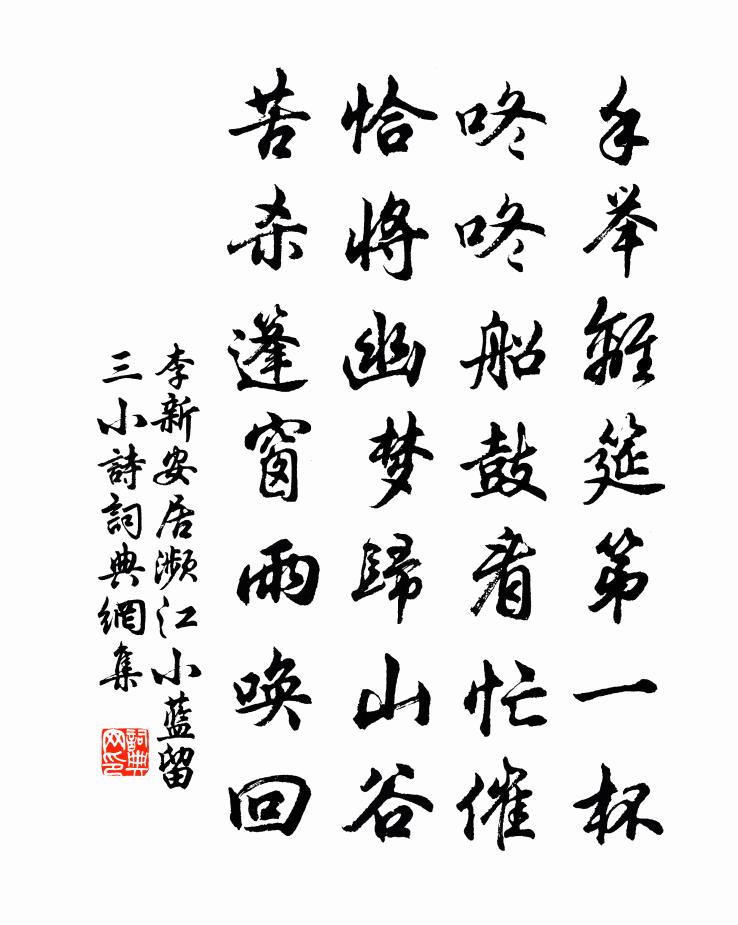 手举離筵第一杯
咚咚船鼓看忙催
恰將幽梦歸山谷
苦杀篷窗雨唤回
李新安居瀕江小藍留
三小詩詞典網集
詞典网印